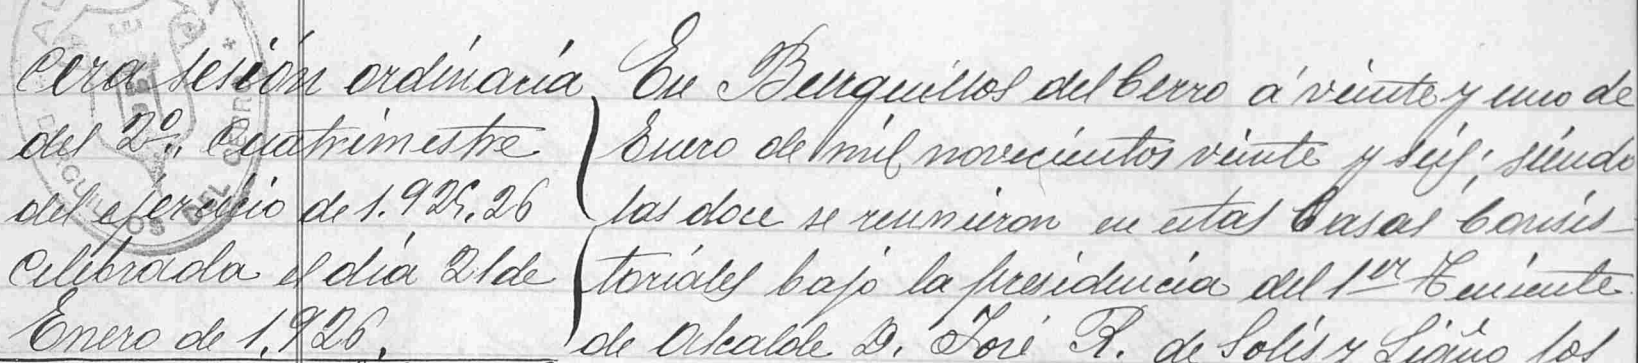 cera sesión ordinaria
del 2º, cuatrimestre
del ejercicio de 1.925,26
celebrada el día 21 de
Enero de 1.926.
En Burguillos del Cerro á veinte y uno de
Enero de mil novecientos veinte y seis; siendo
las doce se reunieron en estas Casas Consis-
toriales bajo la presidencia del 1er Teniente
de Alcalde D. José R. de Solís y Liaño los